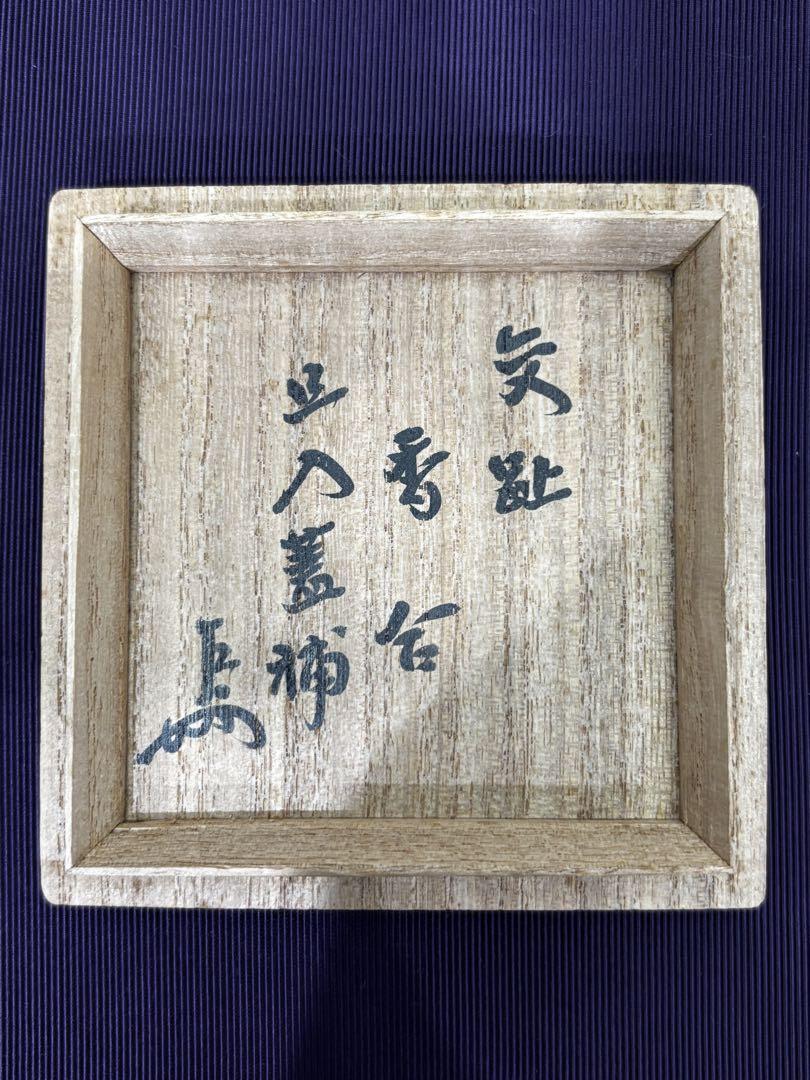 交趾
香合
旦入蓋補